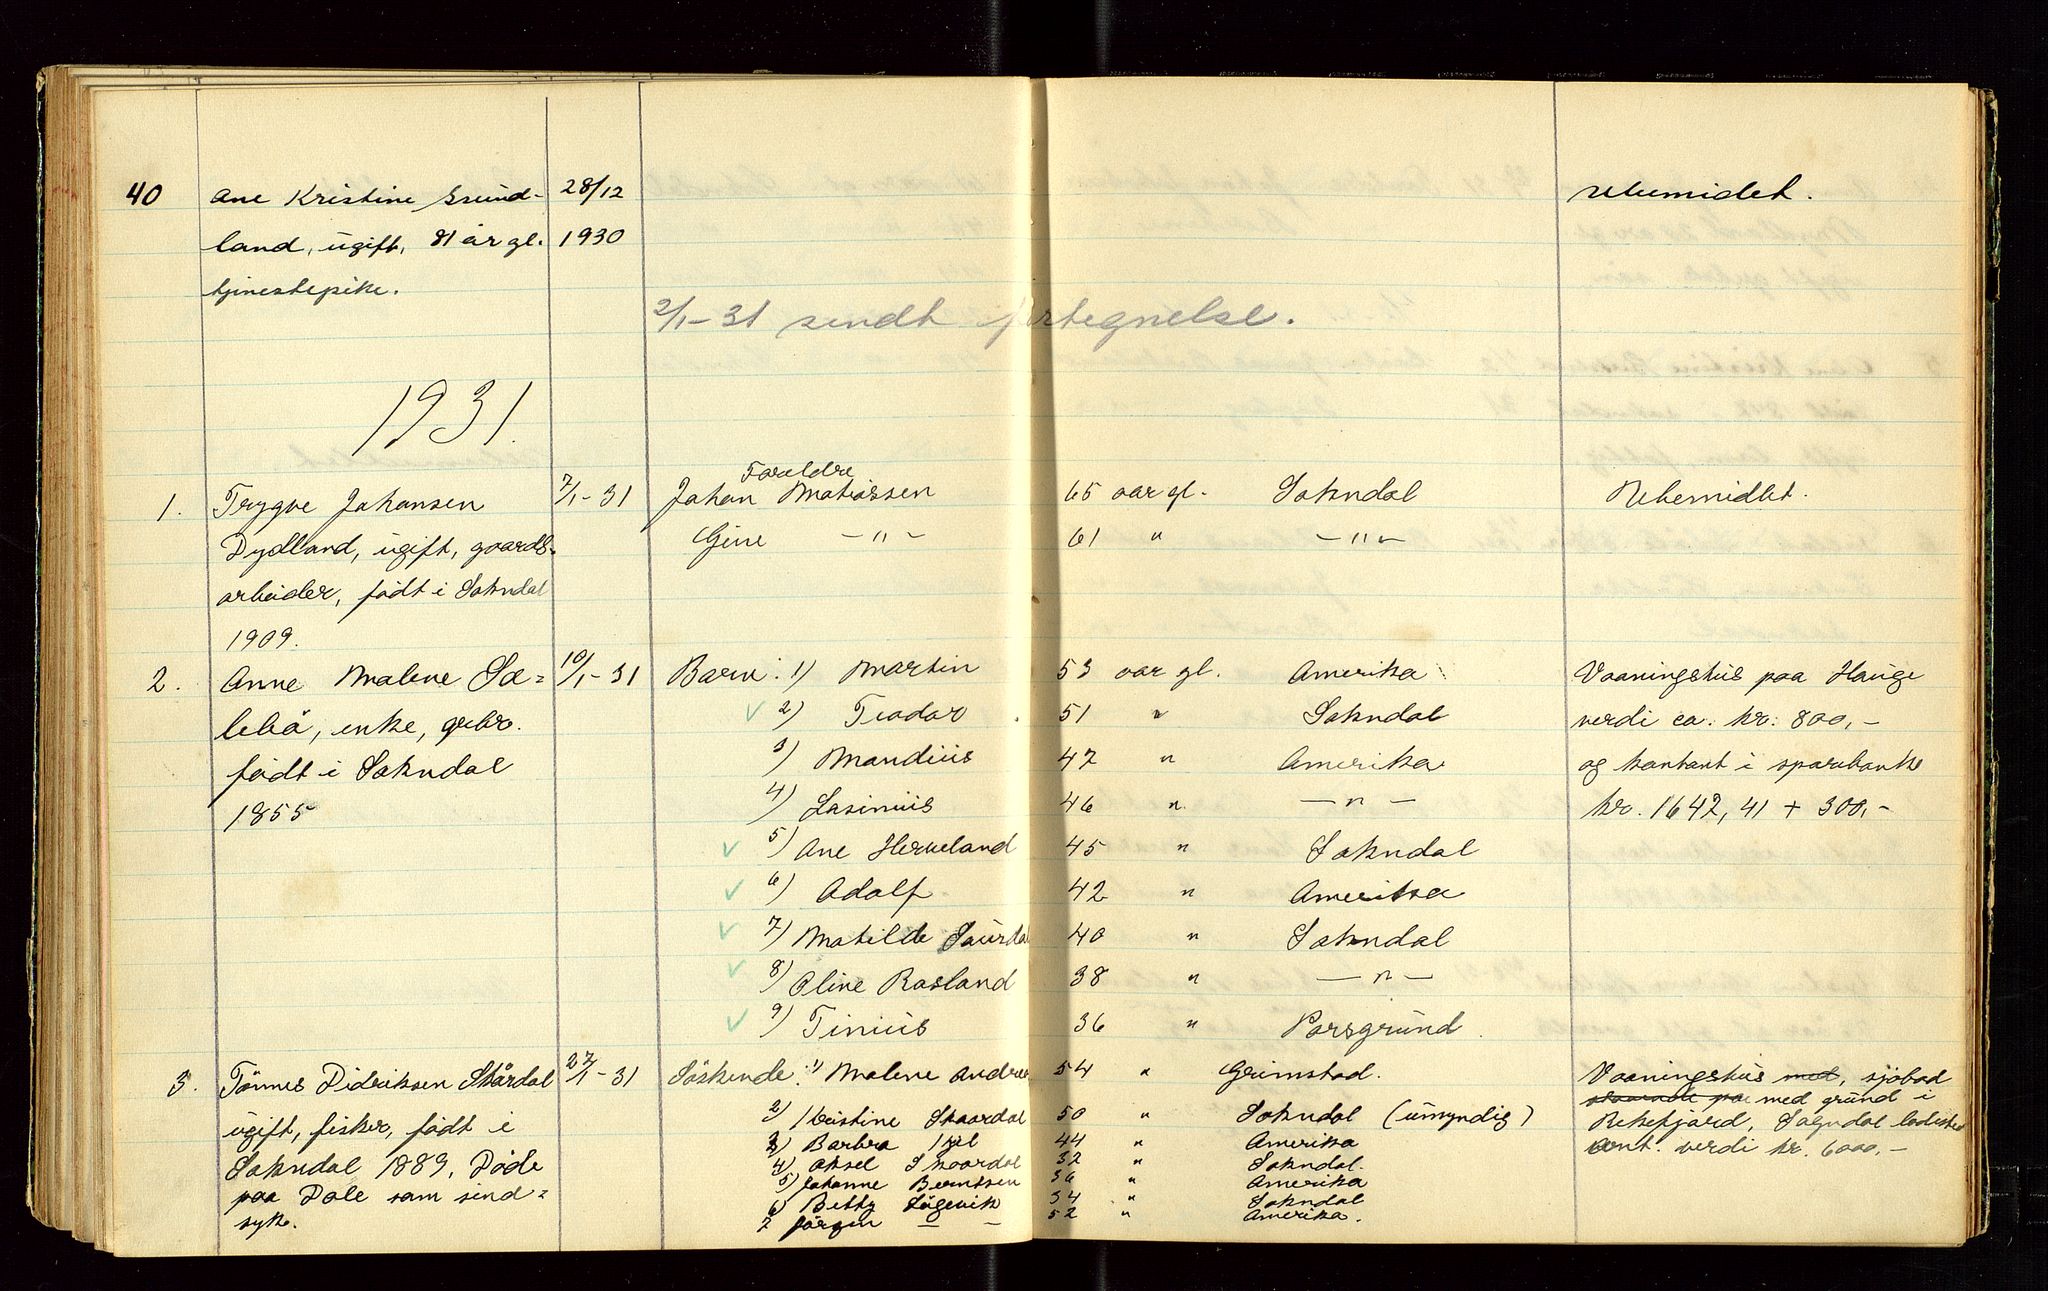 40 Ane Kristine Grund- 28/12 ubemidet.
land, ugift, 81 år gl. 1930
tjenestepike.
2/1-31 sendt fortegnelse.
1931.
Forældre
1. Trygve Johansen 7/1-31 Johan Matiassen 65 aar gl. Sokndal Ubemidlet.
Dydland, ugift, gaards- Gine -"- 61 " -"-
arbeider, født i Sokndal
1909.
2. Anne Malene Sa= 10/1-31 Barn: 1) Martin 53 aar gl. Amerika Vaaningshus paa Hauge
lebå, enke, gebr. 2) Teodor 51 " Sokndal verdi ca. kr: 800,-
født i Sokndal 3) Mandius 47 " Amerika og kontant i sparebank
1855 4) Lasinius 46 " -"- kr. 1642,41 + 300,-
5) Ane Herveland 45 " Sokndal
6) Adolf 42 " Amerika
7) Matilde Saurdal 40 " Sokndal
8) Oline Rosland 38 " -"-
9) Tinius 36 " Porsgrund
3. Tönnes Didriksen Skårdal 27/1-31 Söskende: 1) Malene Andrea 54 " Grimstad. Vaaningshus med, sjöbod
staaende paa med grund i
ugift, fisker, født i 2) Kristine Skaardal 50 " Sokndal (umyndig) Rekefjord, Sogndal ladested
3) Barbra 44 " Amerika ant. verdi kr. 6000,-
Sokndal 1889. Döde 4) Aksel Skaardal 32 " Sokndal.
5) Johanne Berntsen 36 " Amerika
paa Dale som sind= 6) Betty Lögevik 34 " Sokndal
syk. 7 Jörgen - - 52 " Amerika.